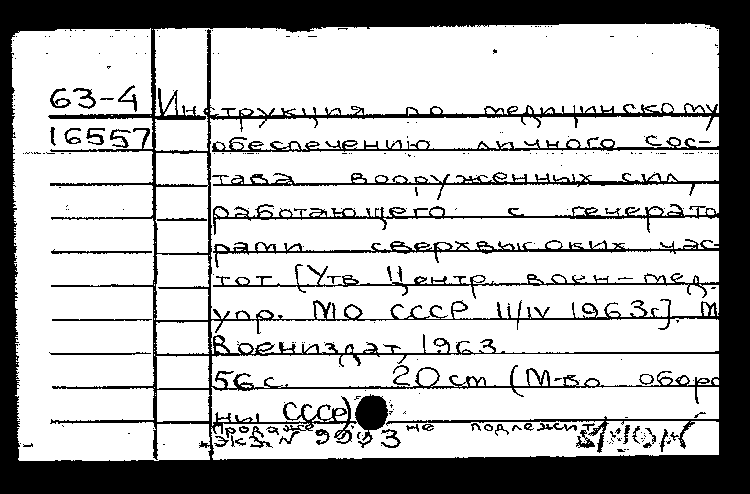 63-4 Инструкция по медицинскому
16557 обеспечению личного сос-
тава вооруженных сил,
работающего с генерато
рами сверхвысоких час-
тот. [Утв. Центр. воен-мед.
упр. МО СССР 11/IV 1963г]. М
Воениздат, 1963.
56 с. 20 cm (М-во оборо
ны СССР)
Продаже не подлежит
Экз. N 9993